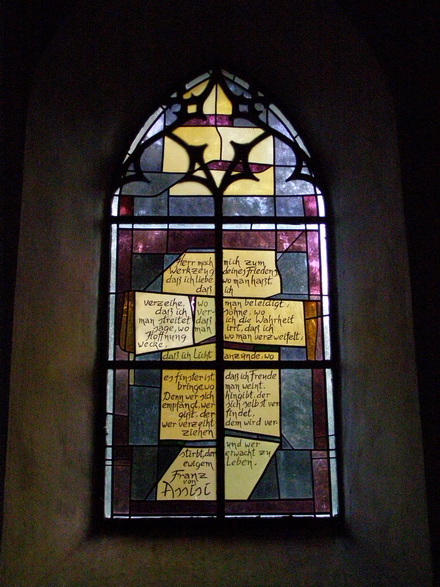 Herr mach mich zum
Werkzeug deines Friedens
daß ich liebe wo man haßt
daß ich
verzeihe, wo man beleidigt,
daß ich ver- söhne, wo
man streitet daß ich die Wahrheit
sage, wo man irrt, daß ich
Hoffnung wo man verzweifelt,
wecke,
daß ich Licht anzünde, wo
es finster ist, daß ich Freude
bringe, wo man weint.
Denn wer sich hingibt, der
empfängt, wer sich selbst ver
gißt, der findet,
wer verzeiht dem wird ver
ziehen und wer
stirbt, der erwacht zu
ewigem Leben.
Franz
von
Assisi